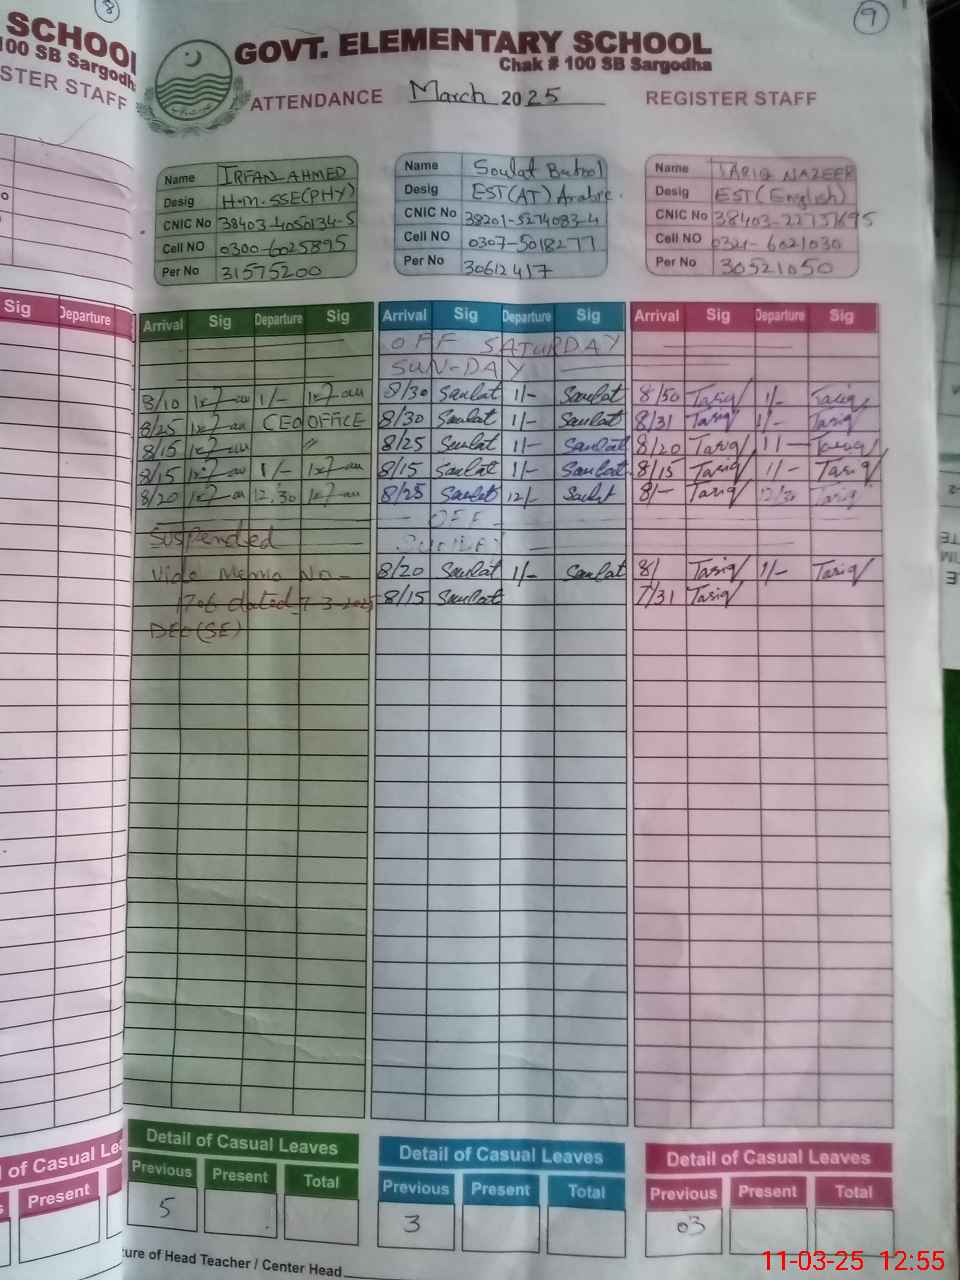 8
SCHOOL
100 SB Sargodh
STER STAFF
Sig Departure
l of Casual Le
Present
9
GOVT. ELEMENTARY SCHOOL
Chak # 100 SB Sargodha
ATTENDANCE March 2025 REGISTER STAFF
Name IRFAN AHMED
Desig H.M. SSE(PHY)
CNIC No 38403-4050134-5
Cell NO 0300-6025895
Per No 31575200
Name Soulat Batool
Desig EST(AT) Arabic.
CNIC No 38201-5274083-4
Cell NO 0307-5018277
Per No 30612417
Name TARIQ NAZEER
Desig EST(English)
CNIC No 38403-22751695
Cell NO 0321-6021030
Per No 30521050
Arrival Sig Departure Sig Arrival Sig Departure Sig Arrival Sig Departure Sig
OFF SATURDAY
SUN-DAY
8/10 1/- 8/30 Saulat 1/- Saulat 8/50 Tariq 1/- Tariq
8/25 CEO OFFICE 8/30 Saulat 1/- Saulat 8/31 Tariq 1/- Tariq
8/15 〃 8/25 Saulat 1/- Saulat 8/20 Tariq 1/- Tariq
8/15 1/- 8/15 Saulat 1/- Saulat 8/15 Tariq 1/- Tariq
8/20 12.30 8/25 Saulat 12/- Saulat 8/- Tariq 12/30 Tariq
OFF
Suspended SUNDAY
Vide Memo No- 8/20 Saulat 1/- Saulat 8/ Tariq 1/- Tariq
1706 dated 7-3-2025 8/15 Saulat 7/31 Tariq
DEO(SE)
Detail of Casual Leaves Detail of Casual Leaves Detail of Casual Leaves
Previous Present Total Previous Present Total Previous Present Total
5 3 03
ure of Head Teacher / Center Head
11-03-25 12:55